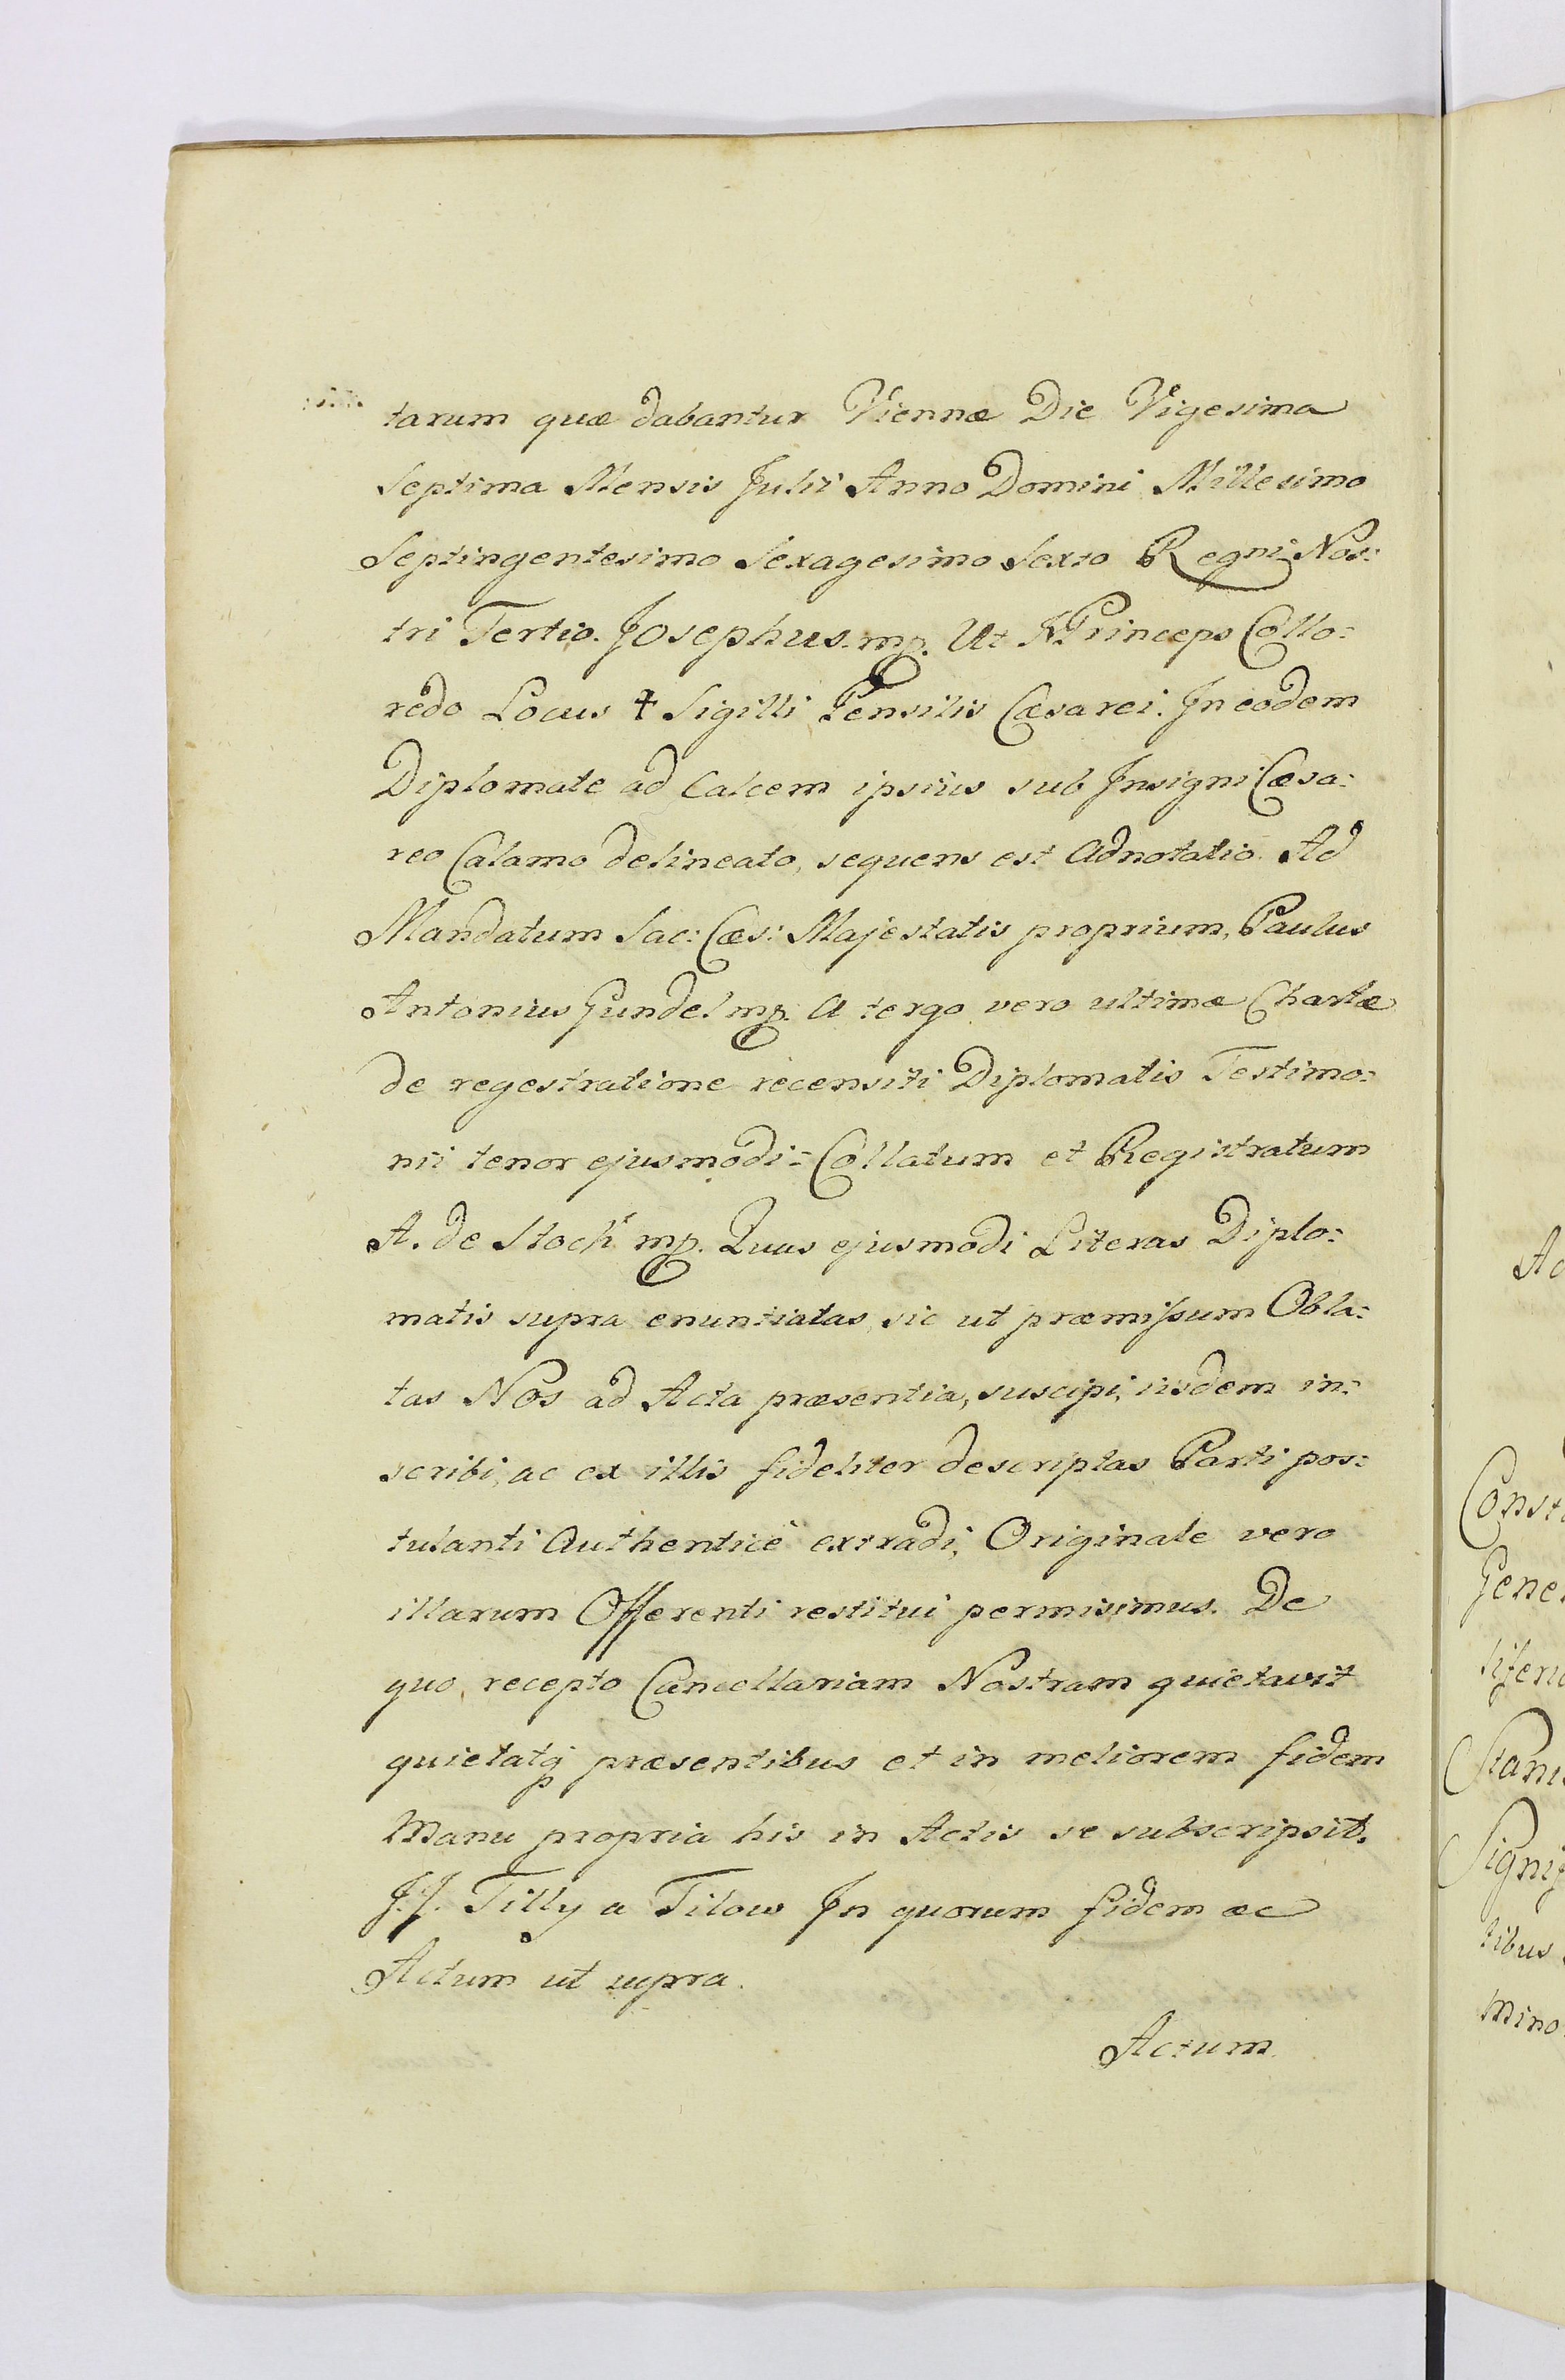 tarum quæ dabantur Viennæ Die Vigesima
Septima Mensis Julii Anno Domini Millesimo
Septingentesimo Sexagesimo Sexto Regni Nos:
tri Tertio. Josephus. mp. Ut Princeps Collo:
redo Locus ✝ Sigilli Pensilis Cæsarei. In eodem
Diplomate ad Calcem ipsius sub Insigni Cæsa:
reo Calamo delineato, sequens est Adnotatio. Ad
Mandatum Sac: Cæs: Majestatis proprium, Paulus
Antonius Gundel mp. A tergo vero ultimæ Chartæ
de regestratione recensiti Diplomatis Testimo:
nii tenor ejusmodi = Collatum et Registratum
A. de Stoch mp. Quas ejusmodi Literas Diplo:
matis supra enuntiatas, sic ut præmissum Obla:
tas Nos ad Acta præsentia, suscipi, iisdem in:
scribi, ac ex illis fideliter descriptas Parti pos:
tulanti Authenticè extradi, Originale vero
illarum Offerenti restitui permisimus. De
quo recepto Cancellariam Nostram quietavit
quietatq præsentibus et in meliorem fidem
Manu propria his in Actis se subscripsit.
J. J. Tilly a Tilow In quorum fidem ac
Actum ut supra.
Actum
Ac
Const
Gene
Stani
Signif
tibus
Mino